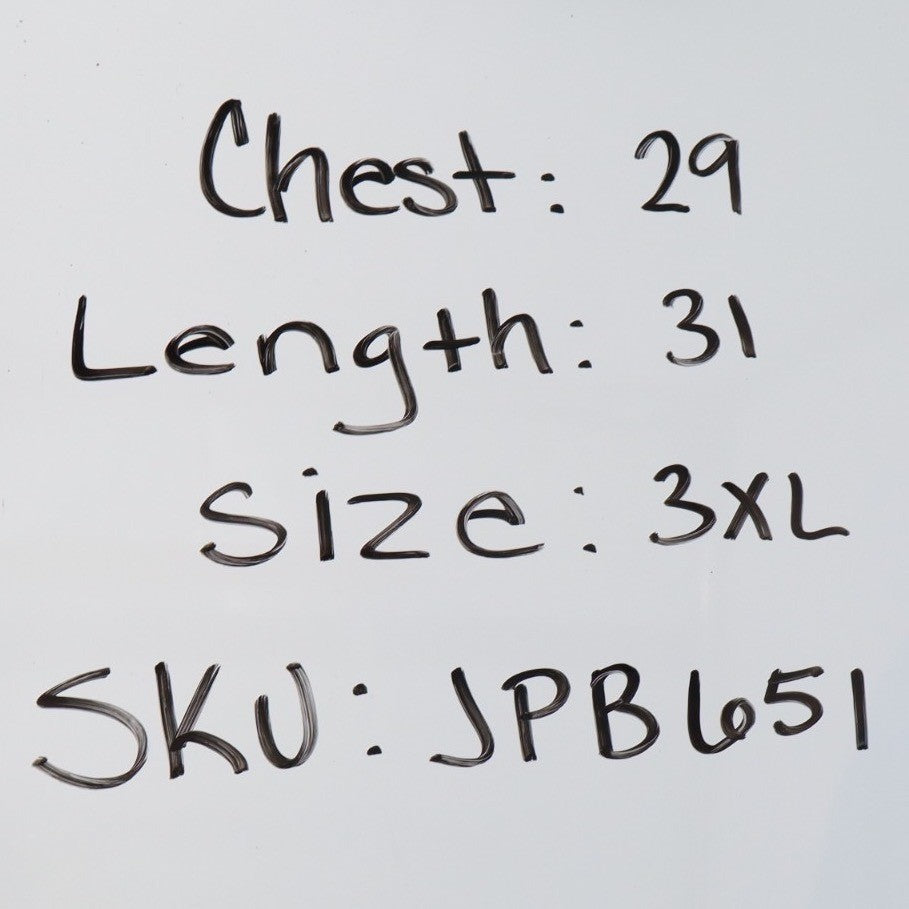 Chest: 29
Length: 31
Size: 3XL
SKU: JPB651